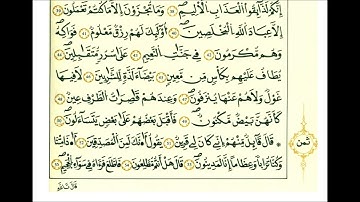 إِنَّكُمْ لَذَآئِقُوا۟ ٱلْعَذَابِ ٱلْأَلِيمِ ٣٨ وَمَا تُجْزَوْنَ إِلَّا مَا كُنتُمْ تَعْمَلُونَ ٣٩
إِلَّا عِبَادَ ٱللَّهِ ٱلْمُخْلَصِينَ ٤٠ أُو۟لَٰٓئِكَ لَهُمْ رِزْقٌ مَّعْلُومٌ ٤١ فَوَٰكِهُ
وَهُم مُّكْرَمُونَ ٤٢ فِى جَنَّٰتِ ٱلنَّعِيمِ ٤٣ عَلَىٰ سُرُرٍ مُّتَقَٰبِلِينَ ٤٤
يُطَافُ عَلَيْهِم بِكَأْسٍ مِّن مَّعِينٍۭ ٤٥ بَيْضَآءَ لَذَّةٍ لِّلشَّٰرِبِينَ ٤٦ لَا فِيهَا
غَوْلٌ وَلَا هُمْ عَنْهَا يُنزَفُونَ ٤٧ وَعِندَهُمْ قَٰصِرَٰتُ ٱلطَّرْفِ عِينٌ ٤٨
كَأَنَّهُنَّ بَيْضٌ مَّكْنُونٌ ٤٩ فَأَقْبَلَ بَعْضُهُمْ عَلَىٰ بَعْضٍ يَتَسَآءَلُونَ ٥٠
قَالَ قَآئِلٌ مِّنْهُمْ إِنِّى كَانَ لِى قَرِينٌ ٥١ يَقُولُ أَءِنَّكَ لَمِنَ ٱلْمُصَدِّقِينَ ٥٢ أَءِذَا مِتْنَا
وَكُنَّا تُرَابًا وَعِظَٰمًا أَءِنَّا لَمَدِينُونَ ٥٣ قَالَ هَلْ أَنتُم مُّطَّلِعُونَ ٥٤ فَٱطَّلَعَ فَرَءَاهُ فِى سَوَآءِ ٱلْجَحِيمِ ٥٥
ثمن